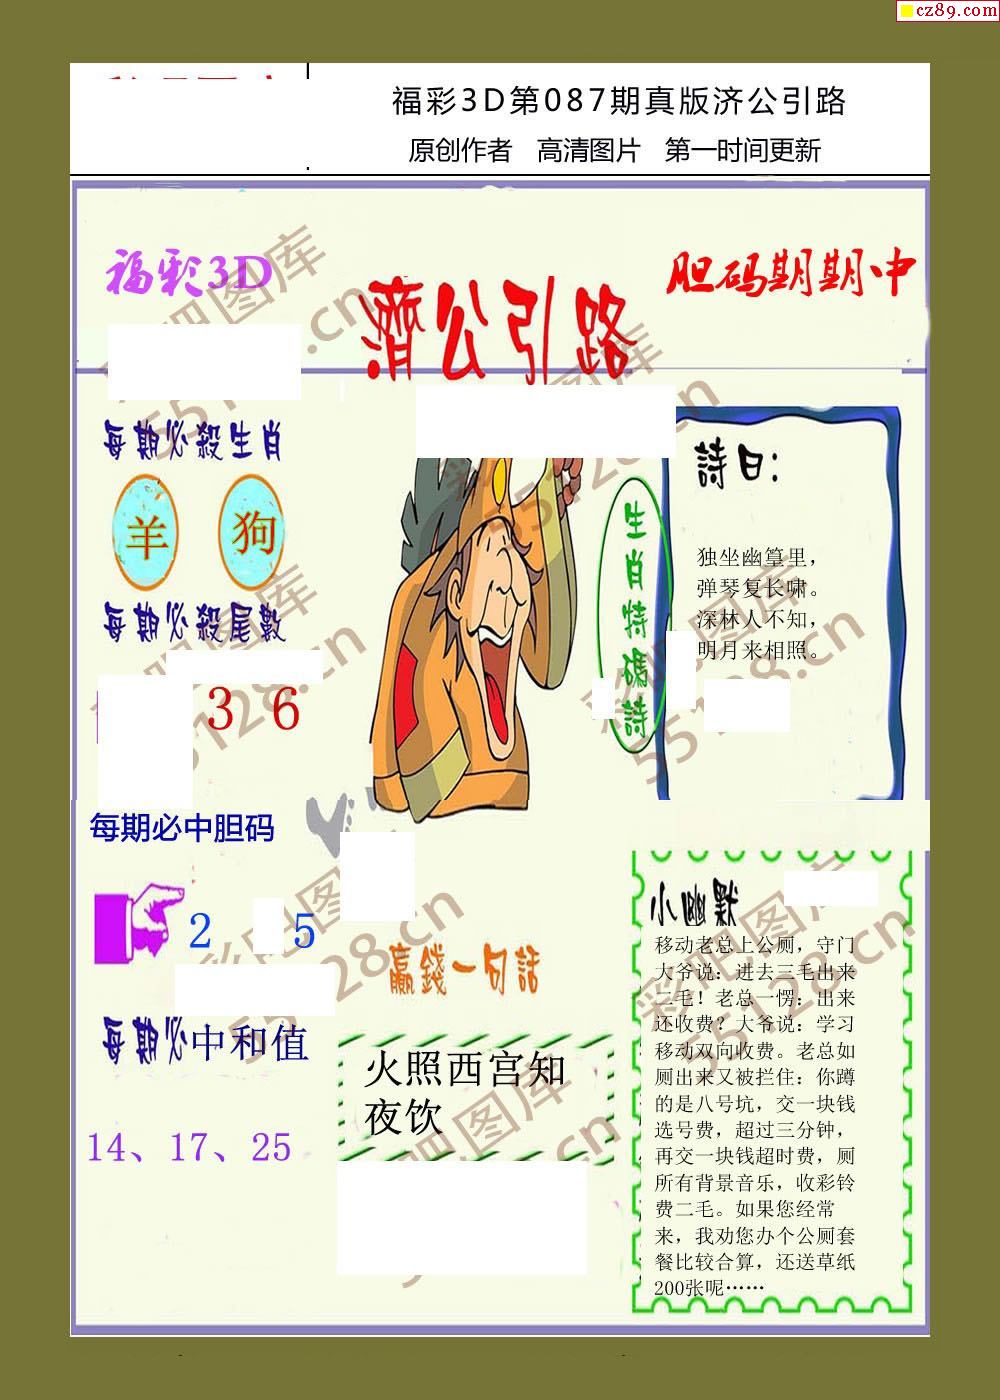 cz89.com
福彩3D第087期真版济公引路
原创作者 高清图片 第一时间更新
福彩3D
濟公引路
胆码期期中
每期必殺生肖
羊 狗
每期必殺尾數
3 6
生肖特碼詩
詩曰：
独坐幽篁里，
弹琴复长啸。
深林人不知，
明月来相照。
每期必中胆码
2 5
每期必中和值
14、17、25
贏錢一句話
火照西宫知
夜饮
小幽默
移动老总上公厕，守门
大爷说：进去三毛出来
二毛！老总一愣：出来
还收费？大爷说：学习
移动双向收费。老总如
厕出来又被拦住：你蹲
的是八号坑，交一块钱
选号费，超过三分钟，
再交一块钱超时费，厕
所有背景音乐，收彩铃
费二毛。如果您经常
来，我劝您办个公厕套
餐比较合算，还送草纸
200张呢……
彩吧图库
55128.cn